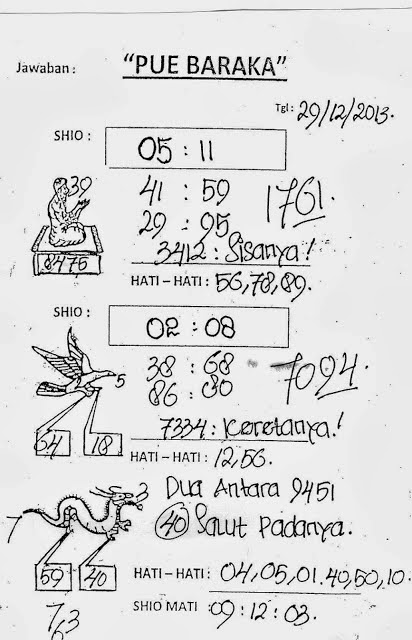 Jawaban : "PUE BARAKA"
Tgl : 29/12/2013.
SHIO : 05 : 11
39
41 : 59
1761.
29 : 95
8475
3412 : Sisanya !
HATI – HATI : 56,78,89.
SHIO : 02 : 08
38 : 68
5
86 : 80
7094.
7334 : Keretanya.!
64 18
HATI – HATI : 12,56.
3 Dua Antara 9451
7
40 Salut Padanya.
59 40
HATI – HATI : 04,05,01.40,50,10.
SHIO MATI : 09 : 12 : 03.
7,3
6